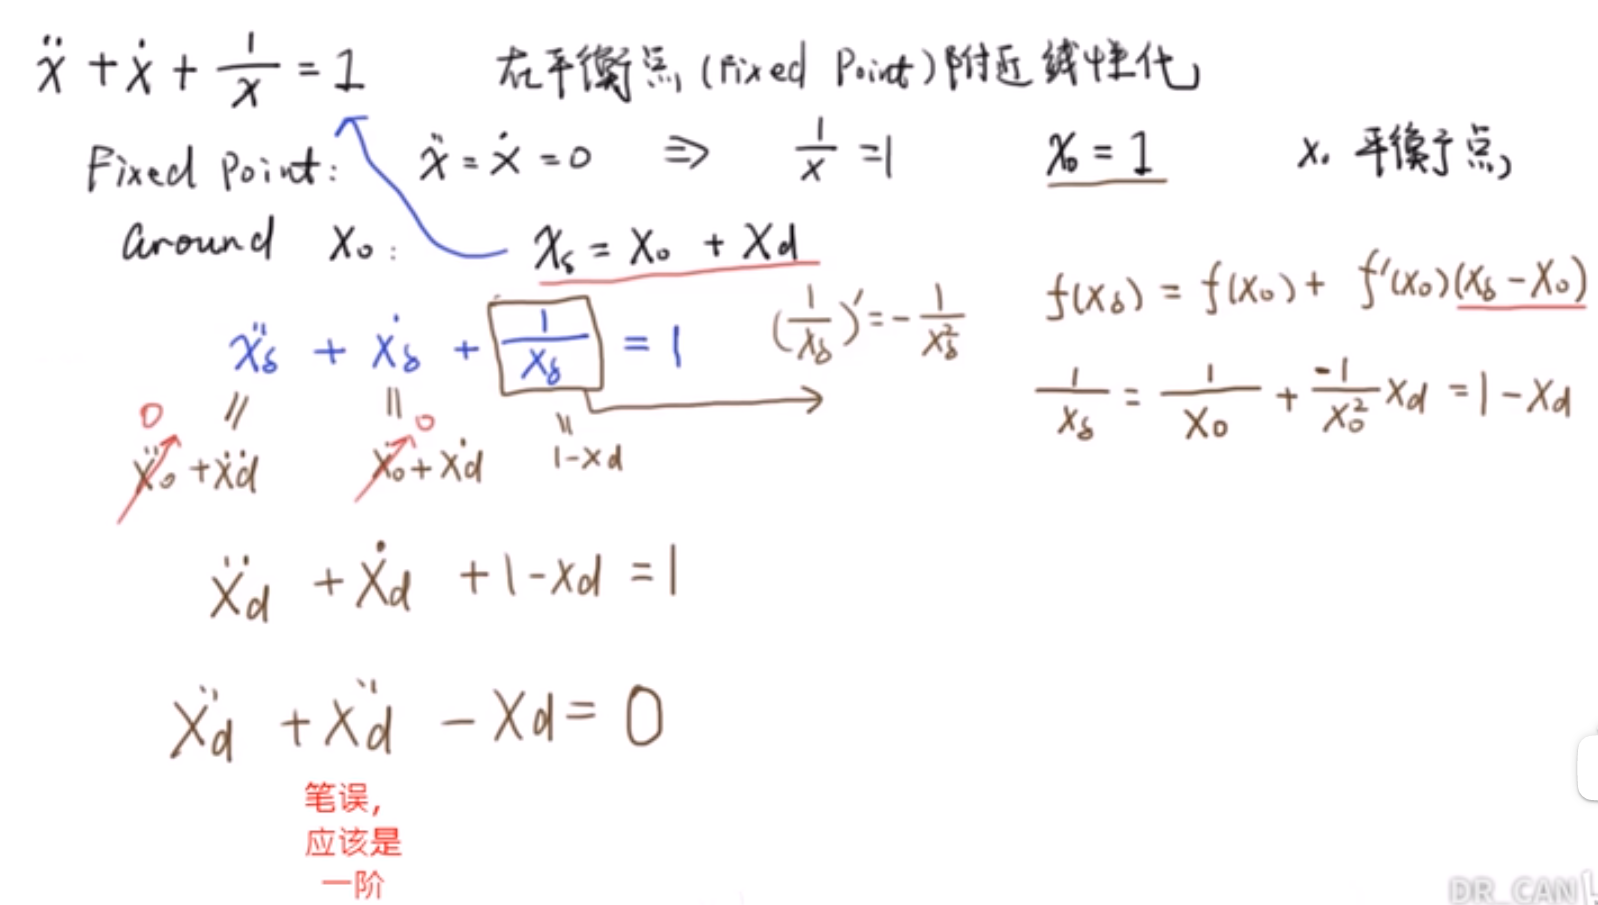 ẍ + ẋ + 1/x = 1 在平衡点 (Fixed Point) 附近线性化
Fixed Point: ẍ = ẋ = 0 ⇒ 1/x = 1 x₀ = 1 x₀ 平衡点
around x₀: x_δ = x₀ + x_d
f(x_δ) = f(x₀) + f'(x₀)(x_δ - x₀)
ẍ_δ + ẋ_δ + 1/x_δ = 1 (1/x_δ)' = -1/x_δ²
1/x_δ = 1/x₀ + -1/x₀² x_d = 1 - x_d
0 = 0 = =
ẍ₀ + ẍ_d ẋ₀ + ẋ_d 1-x_d
ẍ_d + ẋ_d + 1 - x_d = 1
ẍ_d + ẍ_d - x_d = 0
笔误，
应该是
一阶
DR_CAN